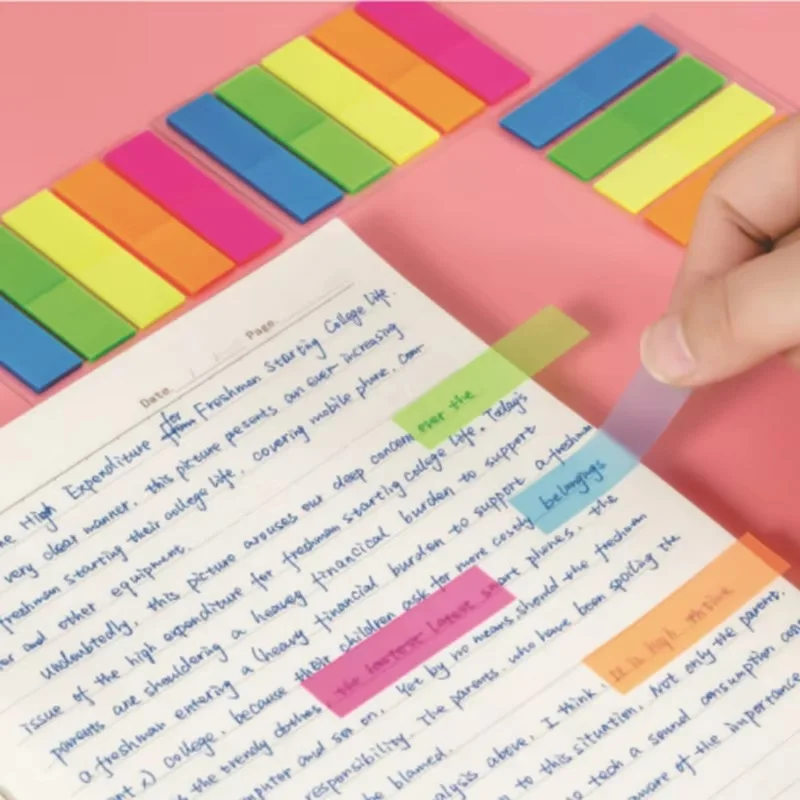 Date / / Page
The High Expenditure for Freshman Starting College Life.
very clear manner, this picture presents an ever increasing
freshman starting their college life, covering mobile phone, com-
and other equipment.
over the
Undoubtedly, this picture arouses our deep concern
issue of the high expenditure for freshman starting college life. Today's
parents are shouldering a heavy financial burden to support
a freshman entering a (heavy financial burden to support a freshman
belongings
college, because their children ask for more costly
the trendy clothes, the latest smart phones, the
and so on. Yet by no means should the freshman
responsibility. The parents, who have been spoiling the
be blamed.
It is high
above, I think,
to this situation. Not only the parent.
tech a sound consumption
aware of the importance